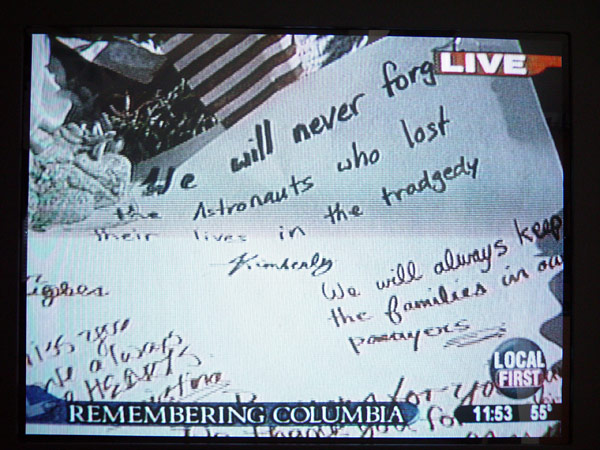 LIVE
We will never forg
the Astronauts who lost
their lives in the tradgedy
Kimberly
We will always keep
the families in ou
prayers
always
HEARTS
for you
thank you for
LOCAL
FIRST
REMEMBERING COLUMBIA
11:53 55°